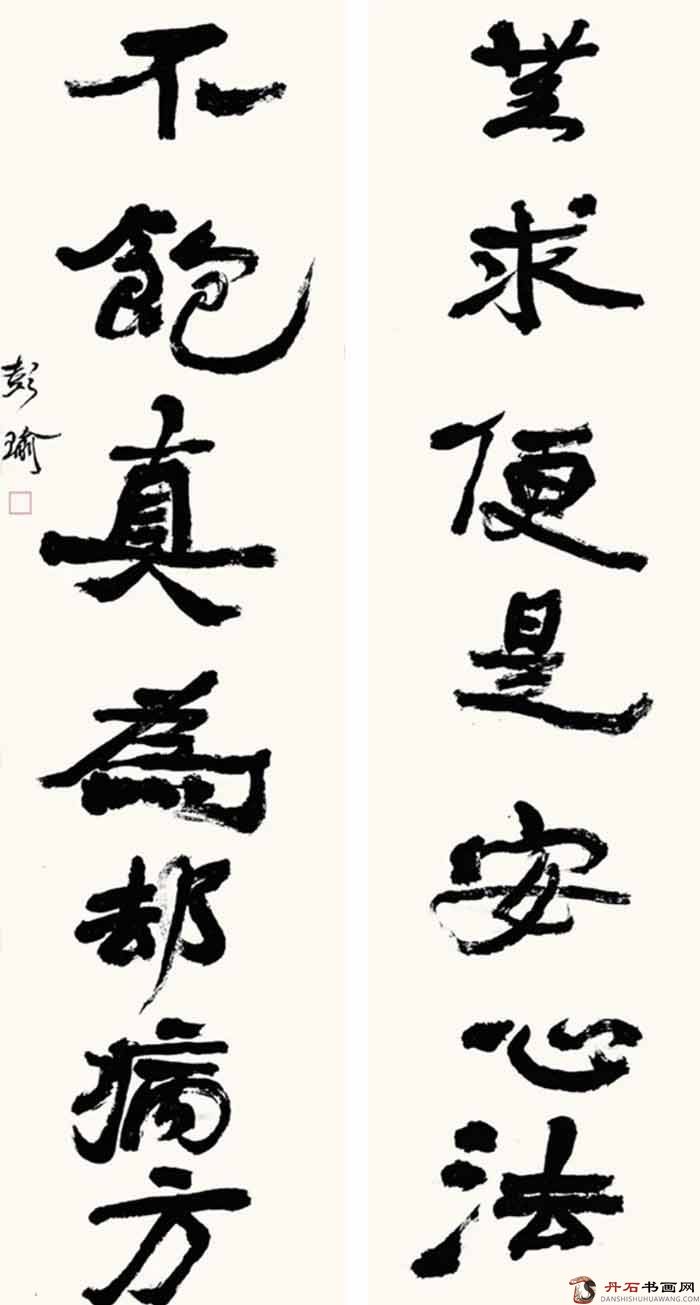 無求便是安心法
不飽真為却病方
彭瑜
丹石书画网
DANSHISHUHUAWANG.COM